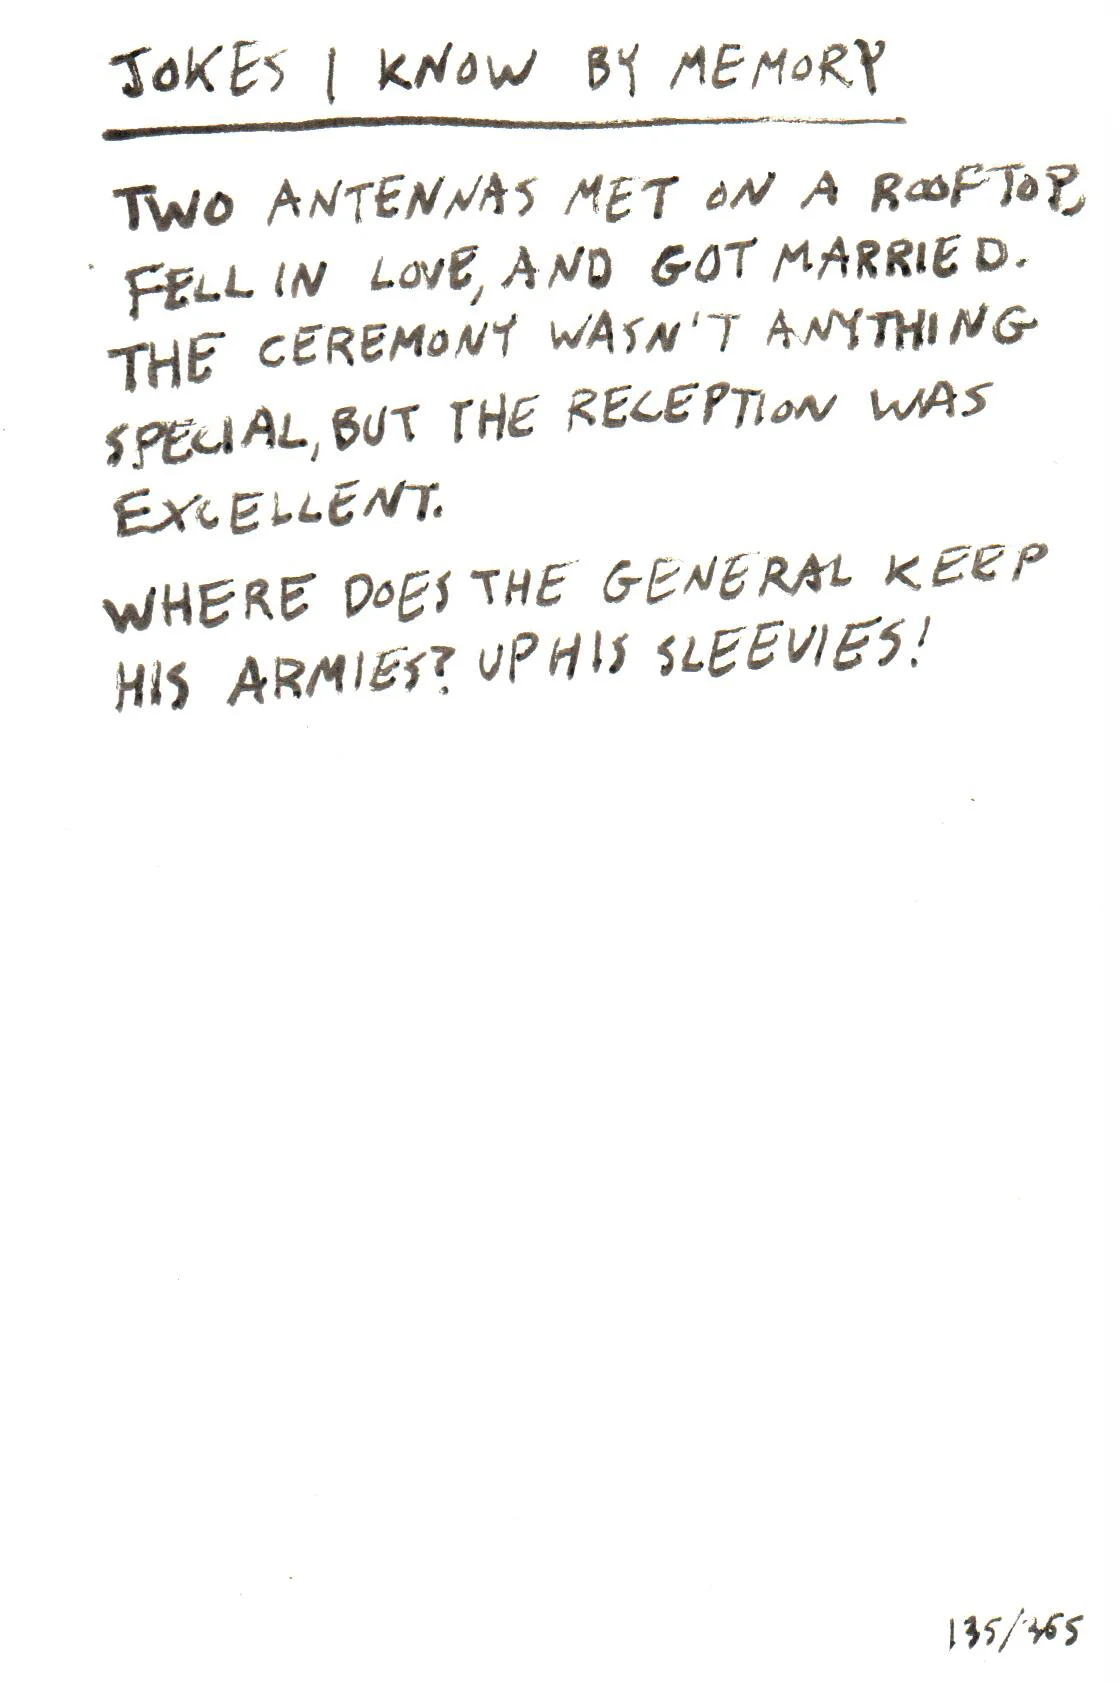 JOKES I KNOW BY MEMORY
TWO ANTENNAS MET ON A ROOFTOP,
FELL IN LOVE, AND GOT MARRIED.
THE CEREMONY WASN'T ANYTHING
SPECIAL, BUT THE RECEPTION WAS
EXCELLENT.
WHERE DOES THE GENERAL KEEP
HIS ARMIES? UP HIS SLEEVIES!
135/365